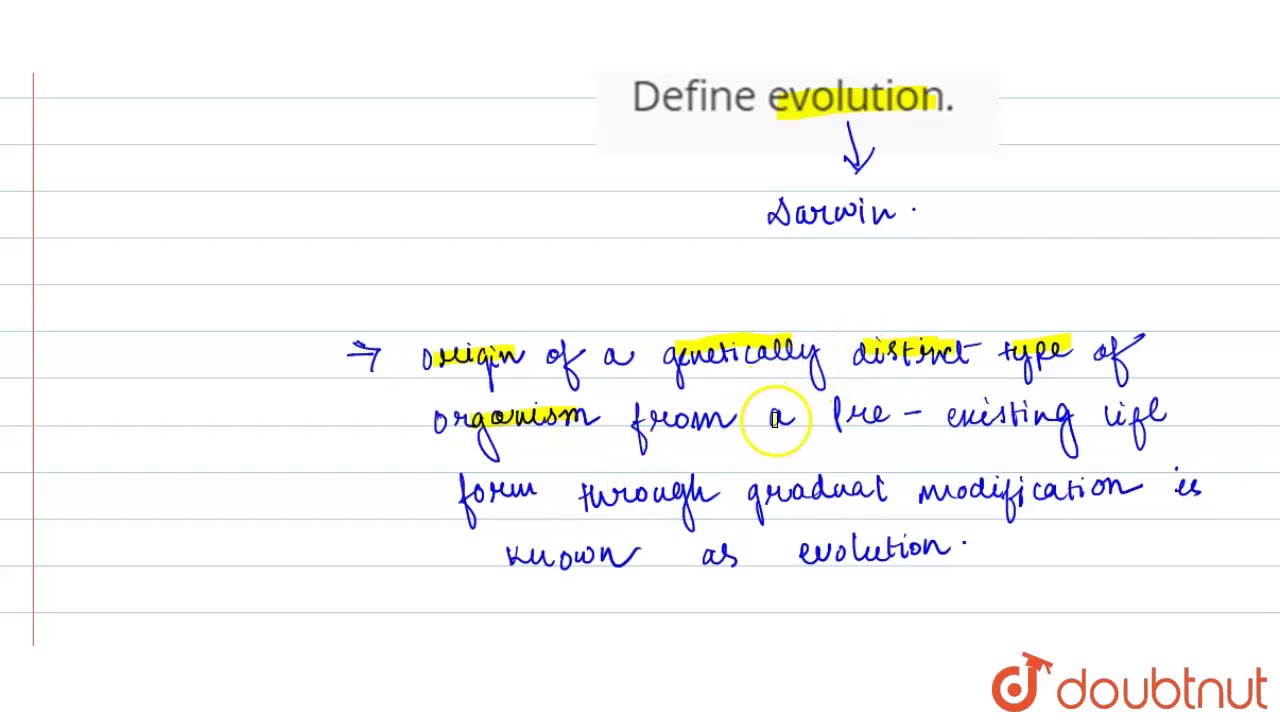 Define evolution.
Darwin.
⇒ origin of a genetically distinct type of
organism from a Pre-existing life
form through gradual modification is
known as evolution.
doubtnut